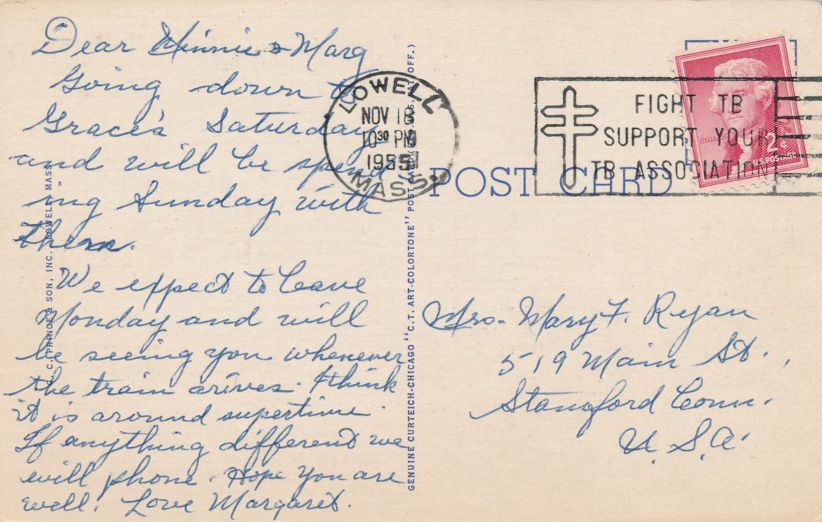 Dear Minnie & Marg
Going down to
Grace's Saturday
and will be spend-
ing Sunday with
them.
We expect to leave
Monday and will
be seeing you whenever
the train arives. I think
it is around supertime.
If anything different we
will phone. Hope you are
well. Love Margaret.
LOWELL
NOV 18
10 30 PM
1955
MASS.
FIGHT TB
SUPPORT YOUR
TB ASSOCIATION
2¢
U.S. POSTAGE
POST CARD
Mrs. Mary F. Ryan
519 Main St.,
Stamford Conn.
U.S.A.
GENUINE CURTEICH-CHICAGO "C.T. ART-COLORTONE" POST OFF.)
PRINCE & SON, INC. LOWELL, MASS.